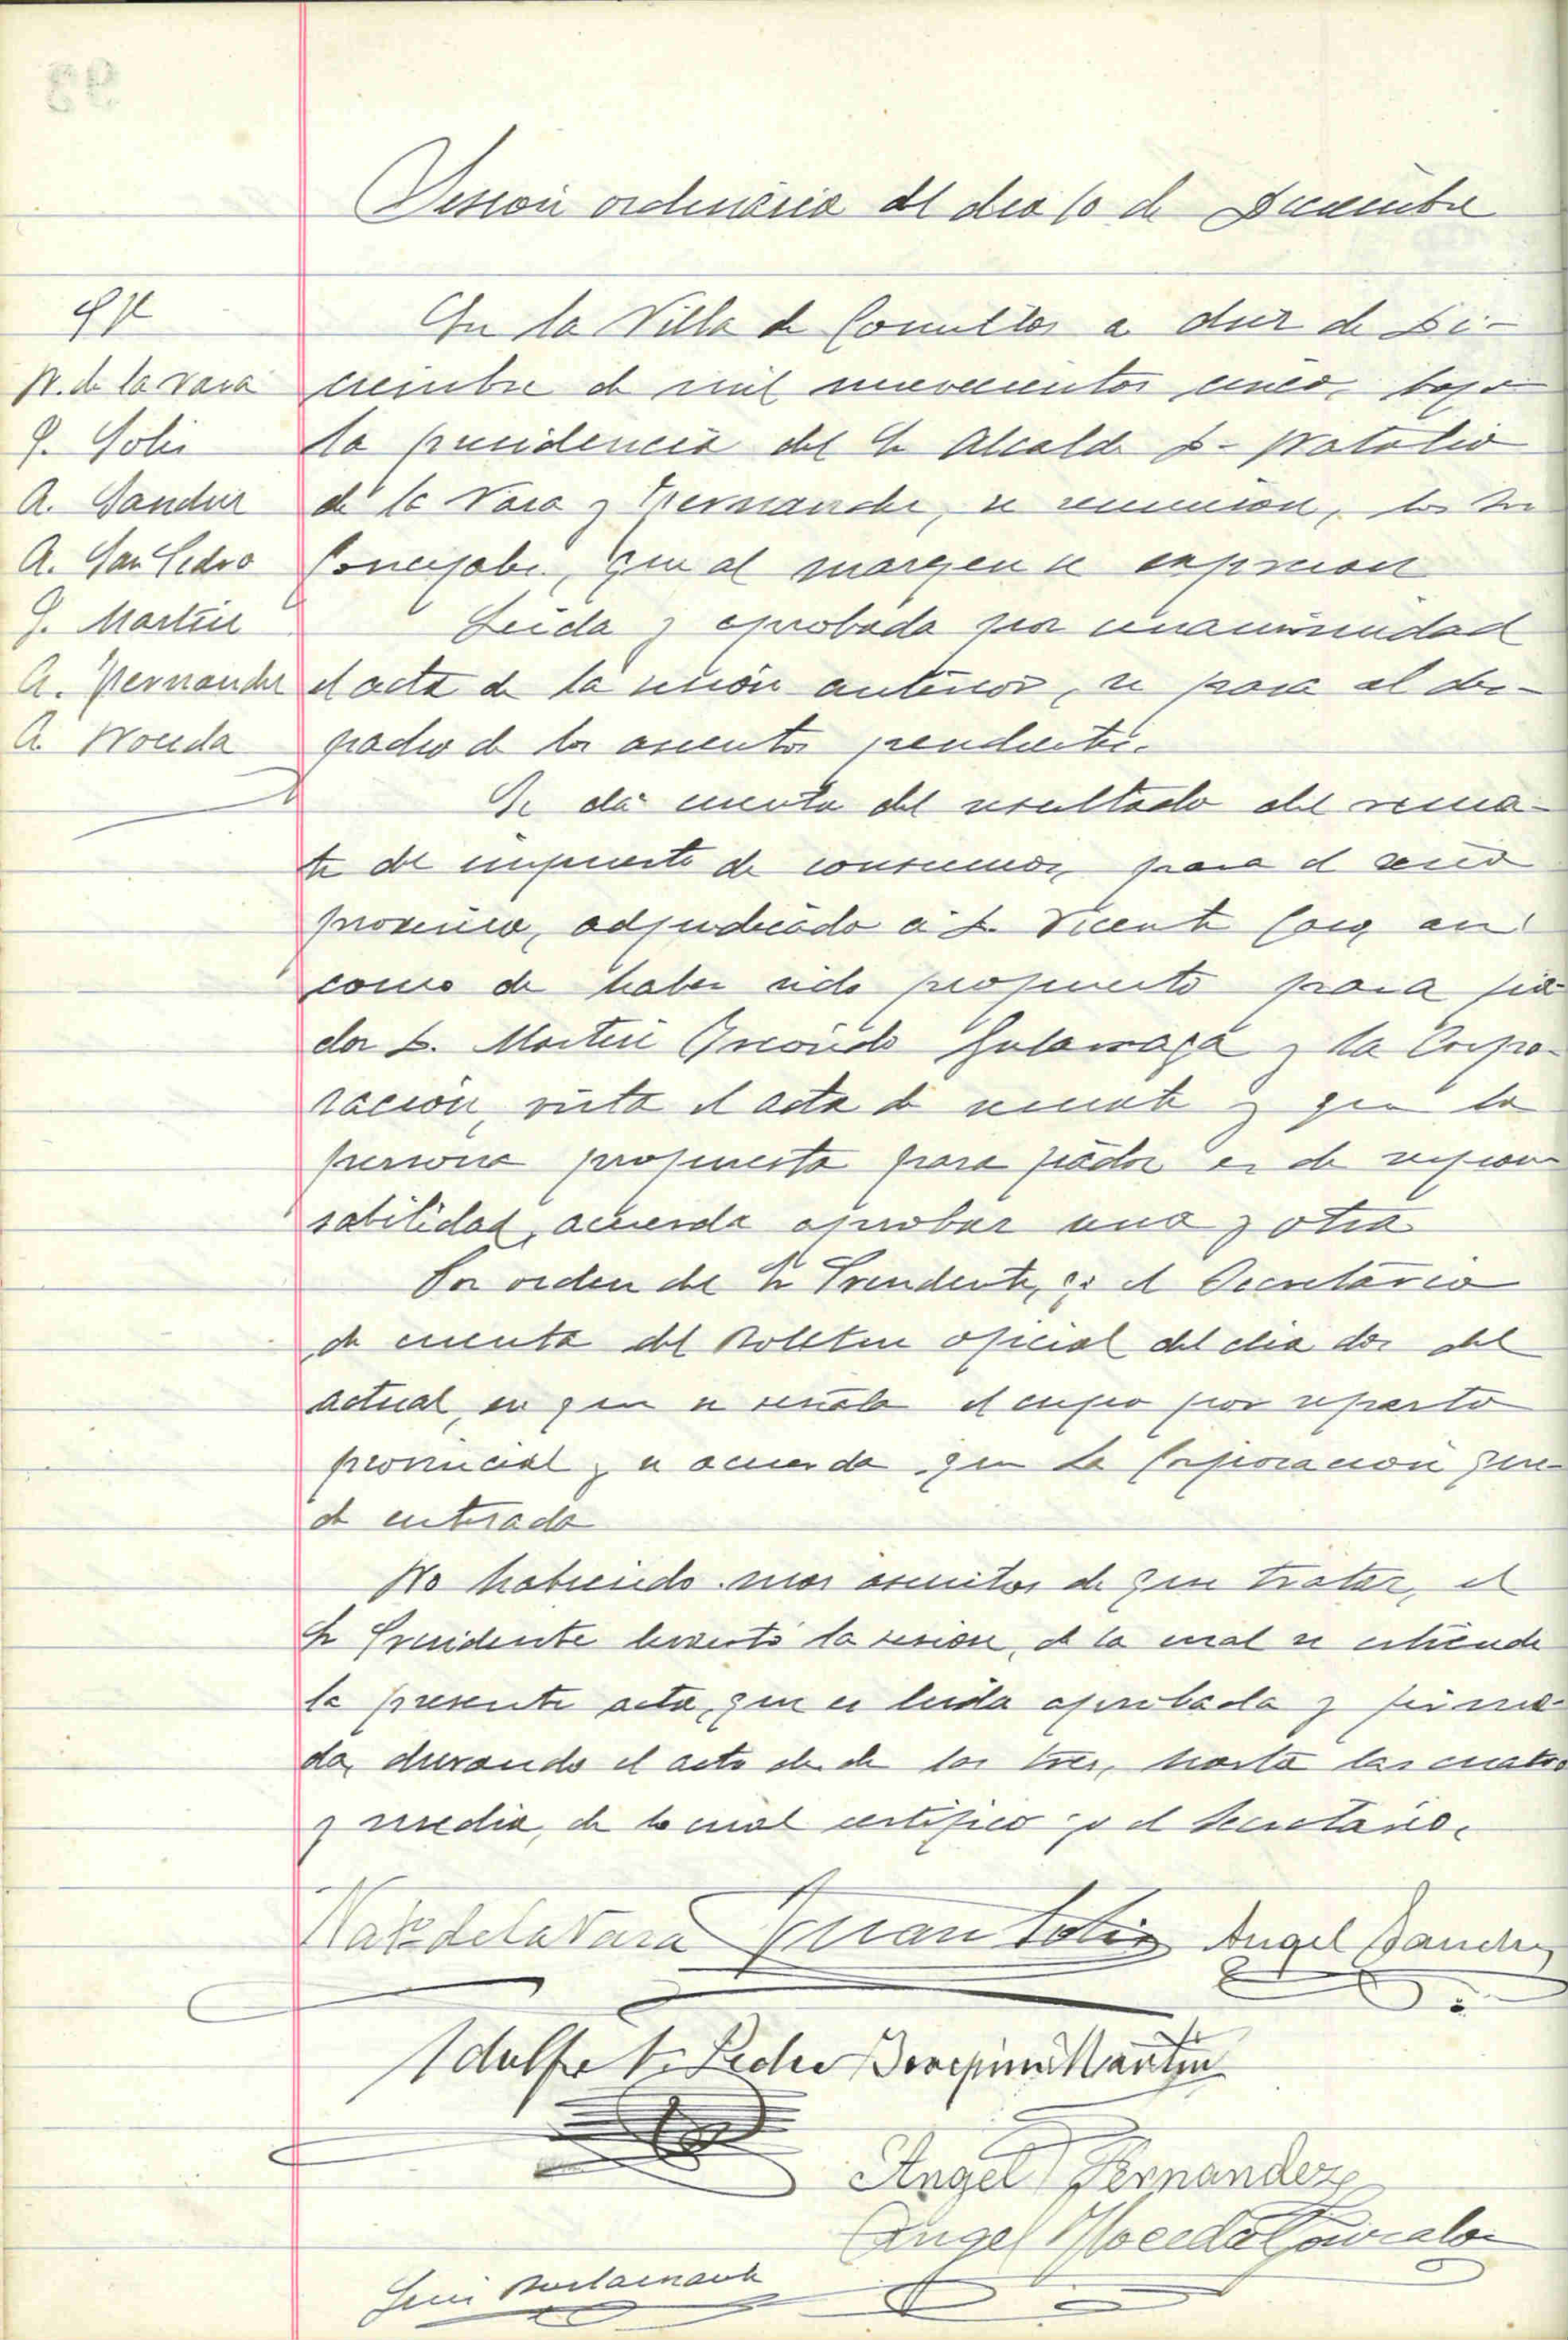 Sesión ordinaria del dia 10 de Diciembre
SS
N. de la Vara
J. Solis
A. Sanchez
A. San Pedro
J. Martin
A. Fernandez
A. Noceda
En la Villa de Comillas a diez de Di-
ciembre de mil novecientos cinco, bajo
la presidencia del Sr Alcalde D. Natalio
de la Vara y Fernandez, se reunieron, los Sres
Concejales, que al margen se expresan
Leida y aprobada por unanimidad
el acta de la sesión anterior, se pasa al des-
pacho de los asuntos pendientes.
Se dá cuenta del resultado del rema-
te del impuesto de consumos, para el año
proximo, adjudicado á D. Vicente así
como de haber sido propuesto para fia-
dor D. Martin y la Corpo-
ración, vista el acta de remate y que la
persona propuesta para fiador es de respon
sabilidad, acuerda aprobar una y otra
Por orden del Sr Presidente, yo el Secretario
di cuenta del Boletin oficial del dia dos del
actual, en que se señala el cupo por reparto
provincial y se acuerda que la Corporación que-
de enterada
No habiendo mas asuntos de que tratar, el
Sr Presidente levantó la sesion, de la cual se extiende
la presente acta, que es leida aprobada y firma-
da, durando el acto desde las tres, hasta las cuatro
y media, de lo cual certifico yo el Secretario.
Nat.o de la Vara Juan Solis Angel Sanchez
Adolfo S. Pedro Martin
Angel Fernandez
Angel Noceda Gonzalez
Bustamante